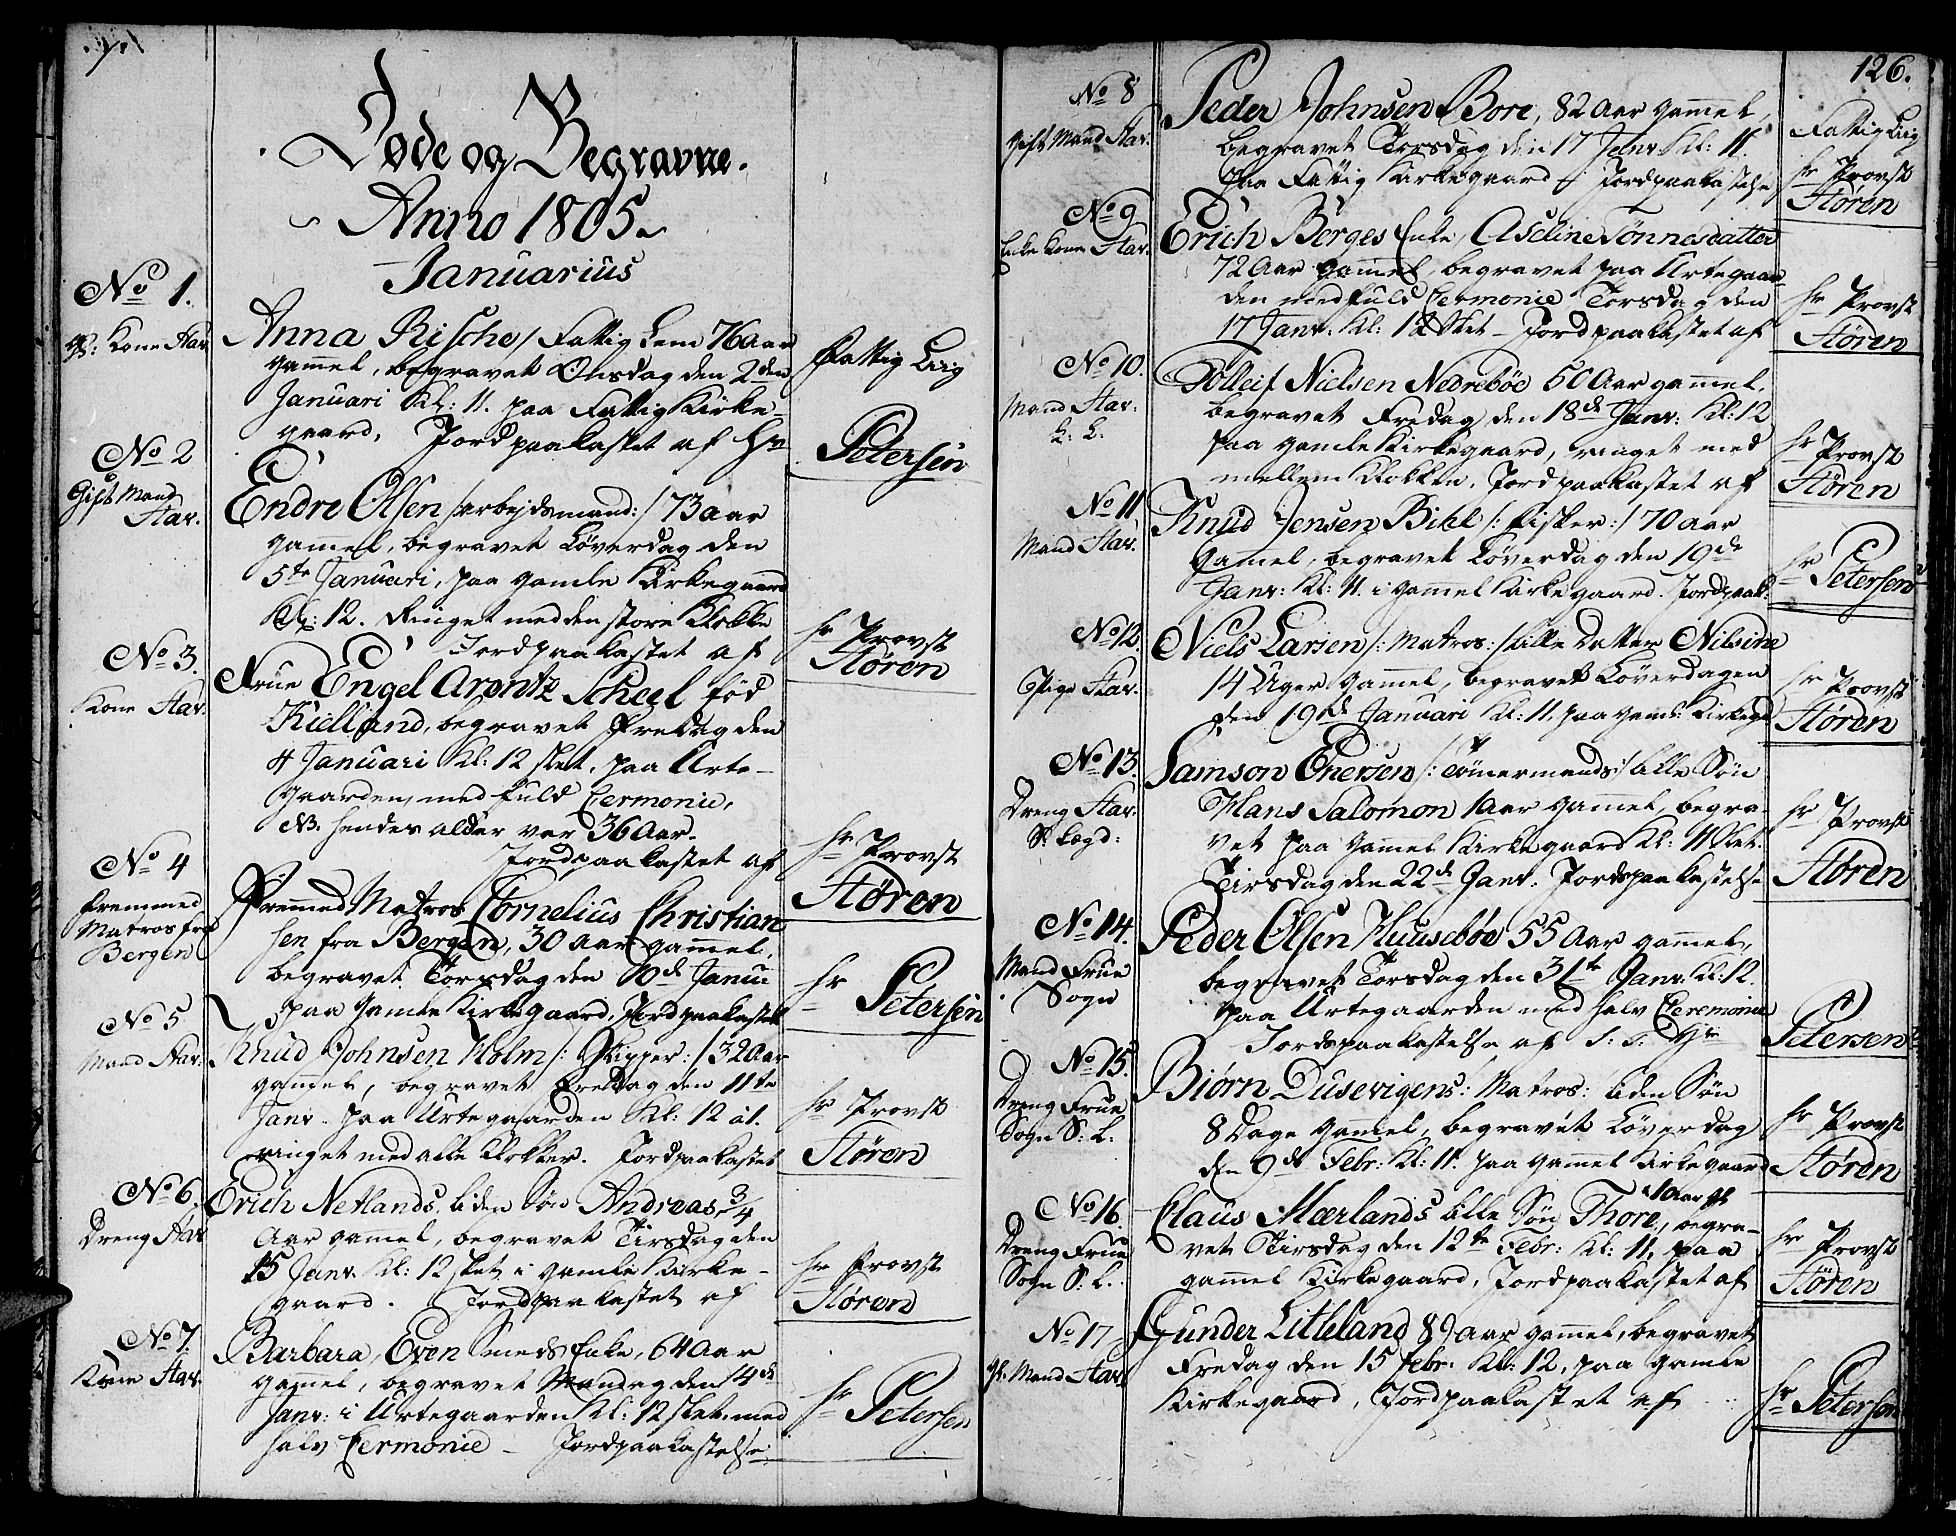 Døde og Begravne.
Anno 1805.
Januarius
No 1.
gl: Kone Stav.
Anna Rische / Fattig Lem 76 Aar
gammel, begravet Onsdag den 2den
Januari Kl: 11. paa Fattig Kirke-
gaard, Jordpaakastet af Hr
Fattig Liig
Petersen
No 2
Gift Mand
Stav.
Endre Olsen /: arbejdsmand :/ 73 aar
gammel, begravet Løverdag den
5te Januari, paa gamle Kirkegaard
Kl: 12. Ringet med den store Klokke
Jordpaakastet af
hr Provst
Støren
No 3.
Kone Stav.
Frue Engel Arentz Scheel fød
Kielland, begravet Fredag den
4 Januari Kl: 12 slet, paa Urte-
gaarden, med fuld Cermonie,
NB. hendes alder var 36 Aar.
Jordpaakastet af
hr Provst
Støren
No 4
fremmed
Matros fra
Bergen
Fremmed Matros Cornelius Christian
sen fra Bergen, 30 aar gammel,
begravet Torsdag den 10de Janu
paa gamle Kirkegaard, Jordpaakastet
hr Petersen
No 5
Mand Stav.
Knud Johnsen Holm /: Skipper :/ 32 Aar
gammel, begravet Fredag den 11te
Janv. paa Urtegaarden Kl: 12 à 1.
ringet med alle Klokker. Jordpaakastet
hr Provst
Støren
No 6.
Dreng Stav
Erich Netlands liden Søn Andreas 3/4
Aar gammel, begravet Tirsdag den
15 Janv. Kl: 12 slet i gamle Kirke-
gaard. Jordpaakastet af
hr Provst
Støren
No 7.
Kone Stav.
Barbara, Even Smeds Enke, 64 Aar
gammel, begravet Mandag den 14de
Janv: i Urtegaarden Kl: 12 slet, med
halv Cermonie - Jordpaakastelse
hr Petersen
126.
No 8
gift Mand Stav.
Peder Johnsen Bore, 82 Aar gammel,
begravet Torsdag den 17 Janv. Kl: 11.
paa Fattig Kirkegaard - Jordpaakastelse
Fattig Liig
hr Provst
Støren
No 9
Enke Kone Stav.
Erich Berges Enke, Aseline Tønnesdatter
72 Aar gammel, begravet paa Urtegaar
den med fuld Cermonie Torsdag den
17 Janv. Kl: 12 slet - Jordpaakastet af
hr Provst
Støren
No 10.
Mand Stav.
Tolleif Nielsen Nedrebøe 50 Aar gammel.
begravet Fredag den 18de Janv: Kl: 12
paa gamle Kirkegaard, ringet med
mellem Klokken, Jordpaakastet af
hr Provst
Støren
No 11
Mand Stav.
Knud Jensen Bihl /: fisker :/ 70 aar
gammel, begravet Løverdag den 19de
Janv: Kl: 11. i gammel Kirkegaard. Jordpaak:
hr Petersen
No 12.
Pige Stav.
Niels Larsen /: Matros :/ lille Datter Nilsine
14 Uger gammel, begravet Løverdagen
den 19de Januari Kl: 11. paa gaml: Kirkeg
hr Provst
Støren
No 13.
Dreng Stav.
S: Lægd:
Samson Enersen /: Tømermands :/ lille Søn
Hans Salomon 1 aar gammel, begra-
vet paa gammel Kirkegaard Kl: 11 slet.
Tirsdag den 22de Janv. Jordspaakastelse
hr Provst
Støren
No 14.
Mand Frue
Sogn
Peder Olsen Huusebøe 55 Aar gammel,
begravet Torsdag den 31te Janv. Kl: 12.
paa Urtegaarden med halv Ceremonie
Jordspaakastelse af S: T: Hr
Petersen
No 15.
Dreng Frue
Sogn S: L:
Biørn Dusevigens: Matros: liden Søn
8 Dage gammel, begravet Løverdag
den 9de Febr: Kl: 11. paa gammel Kirkegaard
hr Provst
Støren
No 16.
Dreng Frue
Sogn S: L.
Claus Mærlands lille Søn Thore, 1 aar gl, begra-
vet Tirsdag den 12te Febr: Kl: 11, paa
gammel Kirkegaard, Jordpaakastet af
hr Provst
Støren
No 17
gl: Mand Stav.
Gunder Litleland 89 aar gammel, begravet
Fredag den 15 febr: Kl: 12, paa gamle
Kirkegaard, Jordpaakastet af
hr Petersen